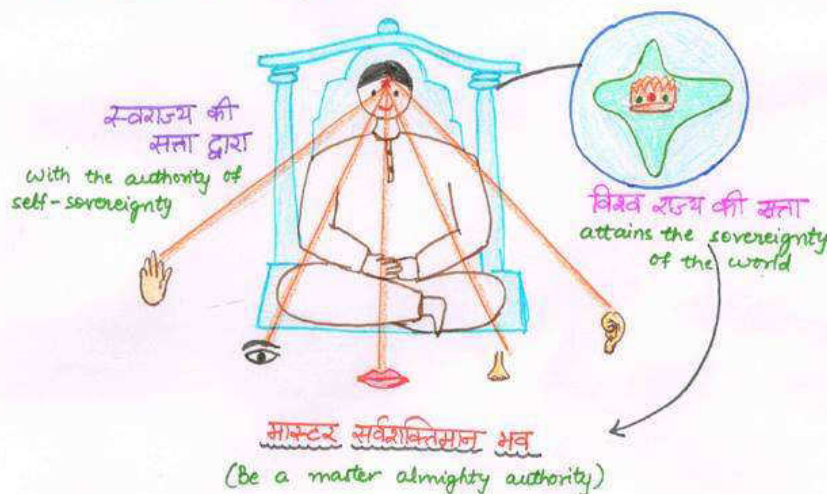 स्वराज्य की
सत्ता द्वारा
with the authority of
self-sovereignty
विश्व राज्य की सत्ता
attains the sovereignty
of the world
मास्टर सर्वशक्तिमान भव
(Be a master almighty authority)